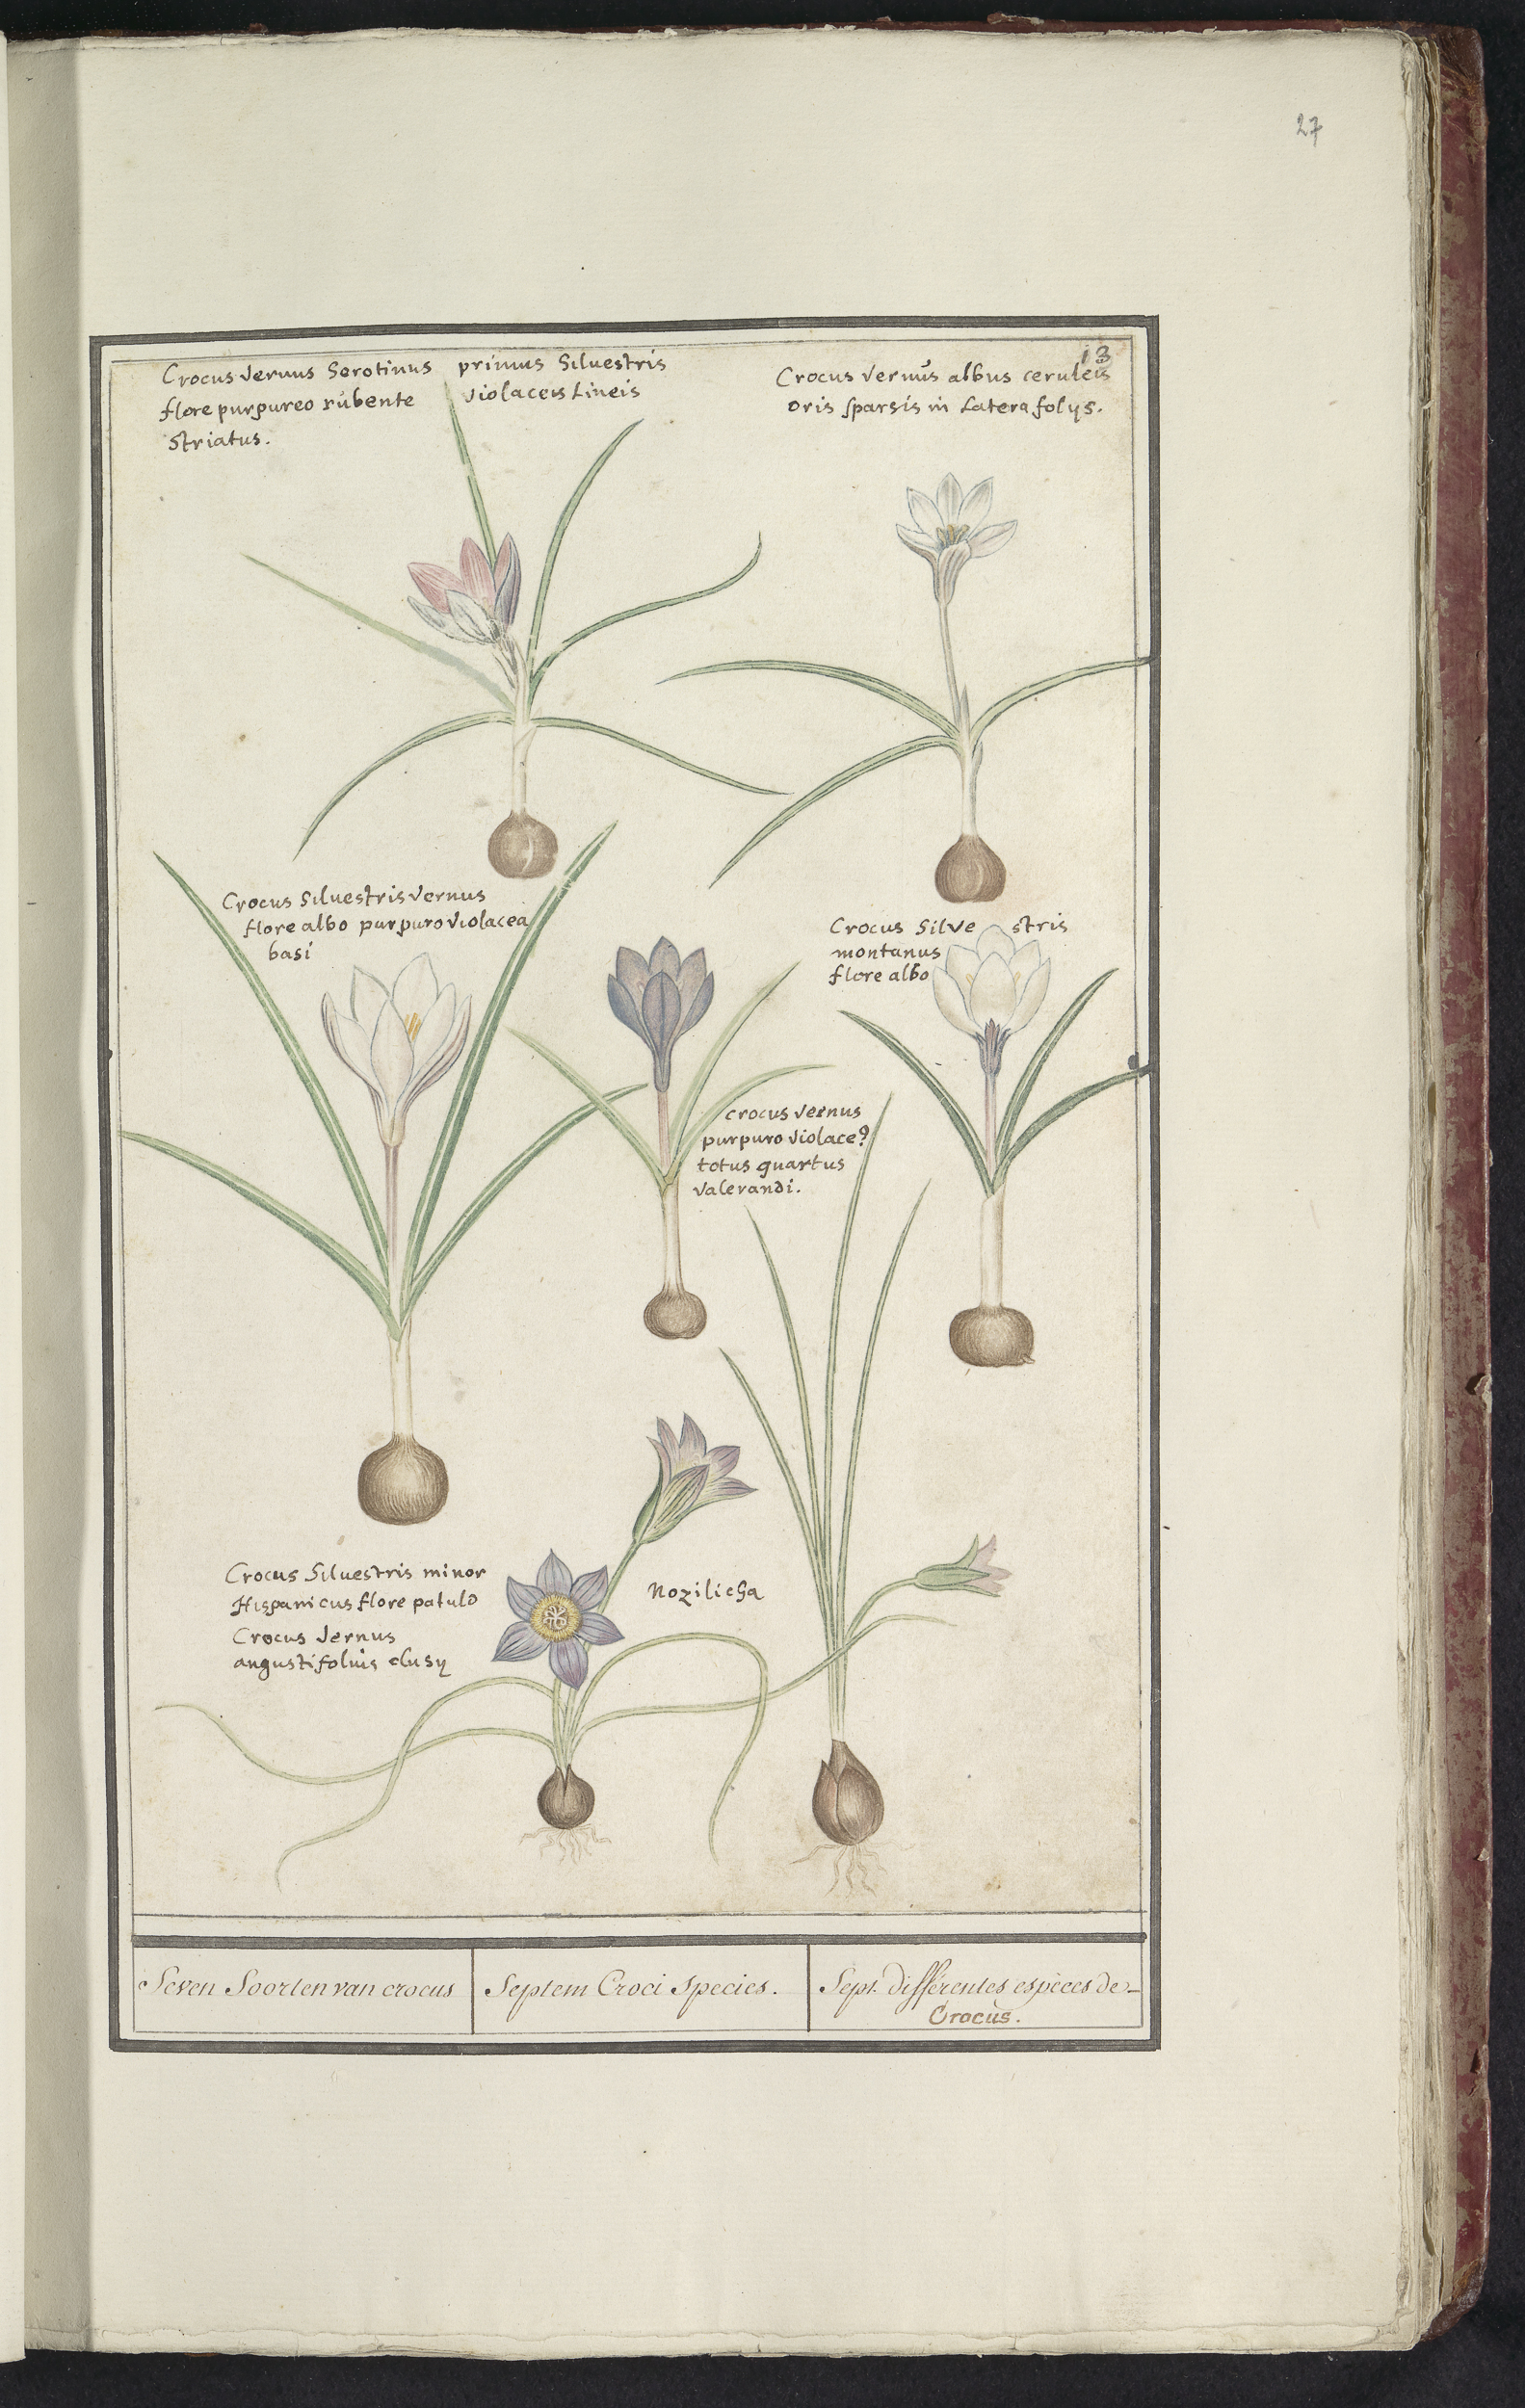 27
13
Crocus vernus Serotinus primus Siluestris
flore purpureo rubente violaceis Lineis
striatus.
Crocus vernus albus ceruleis
oris sparsis in Latera folys.
Crocus Siluestris vernus
flore albo purpuro violacea
basi
Crocus Silvestris
montanus
flore albo
crocus vernus
purpuro violace?
totus quartus
valerandi.
Crocus Siluestris minor
Hispanicus flore patulo
Crocus vernus
angustifolius clusy
Nozilicha
Seven Soorten van crocus
Septem Croci Species.
Sept. différentes espèces de
Crocus.